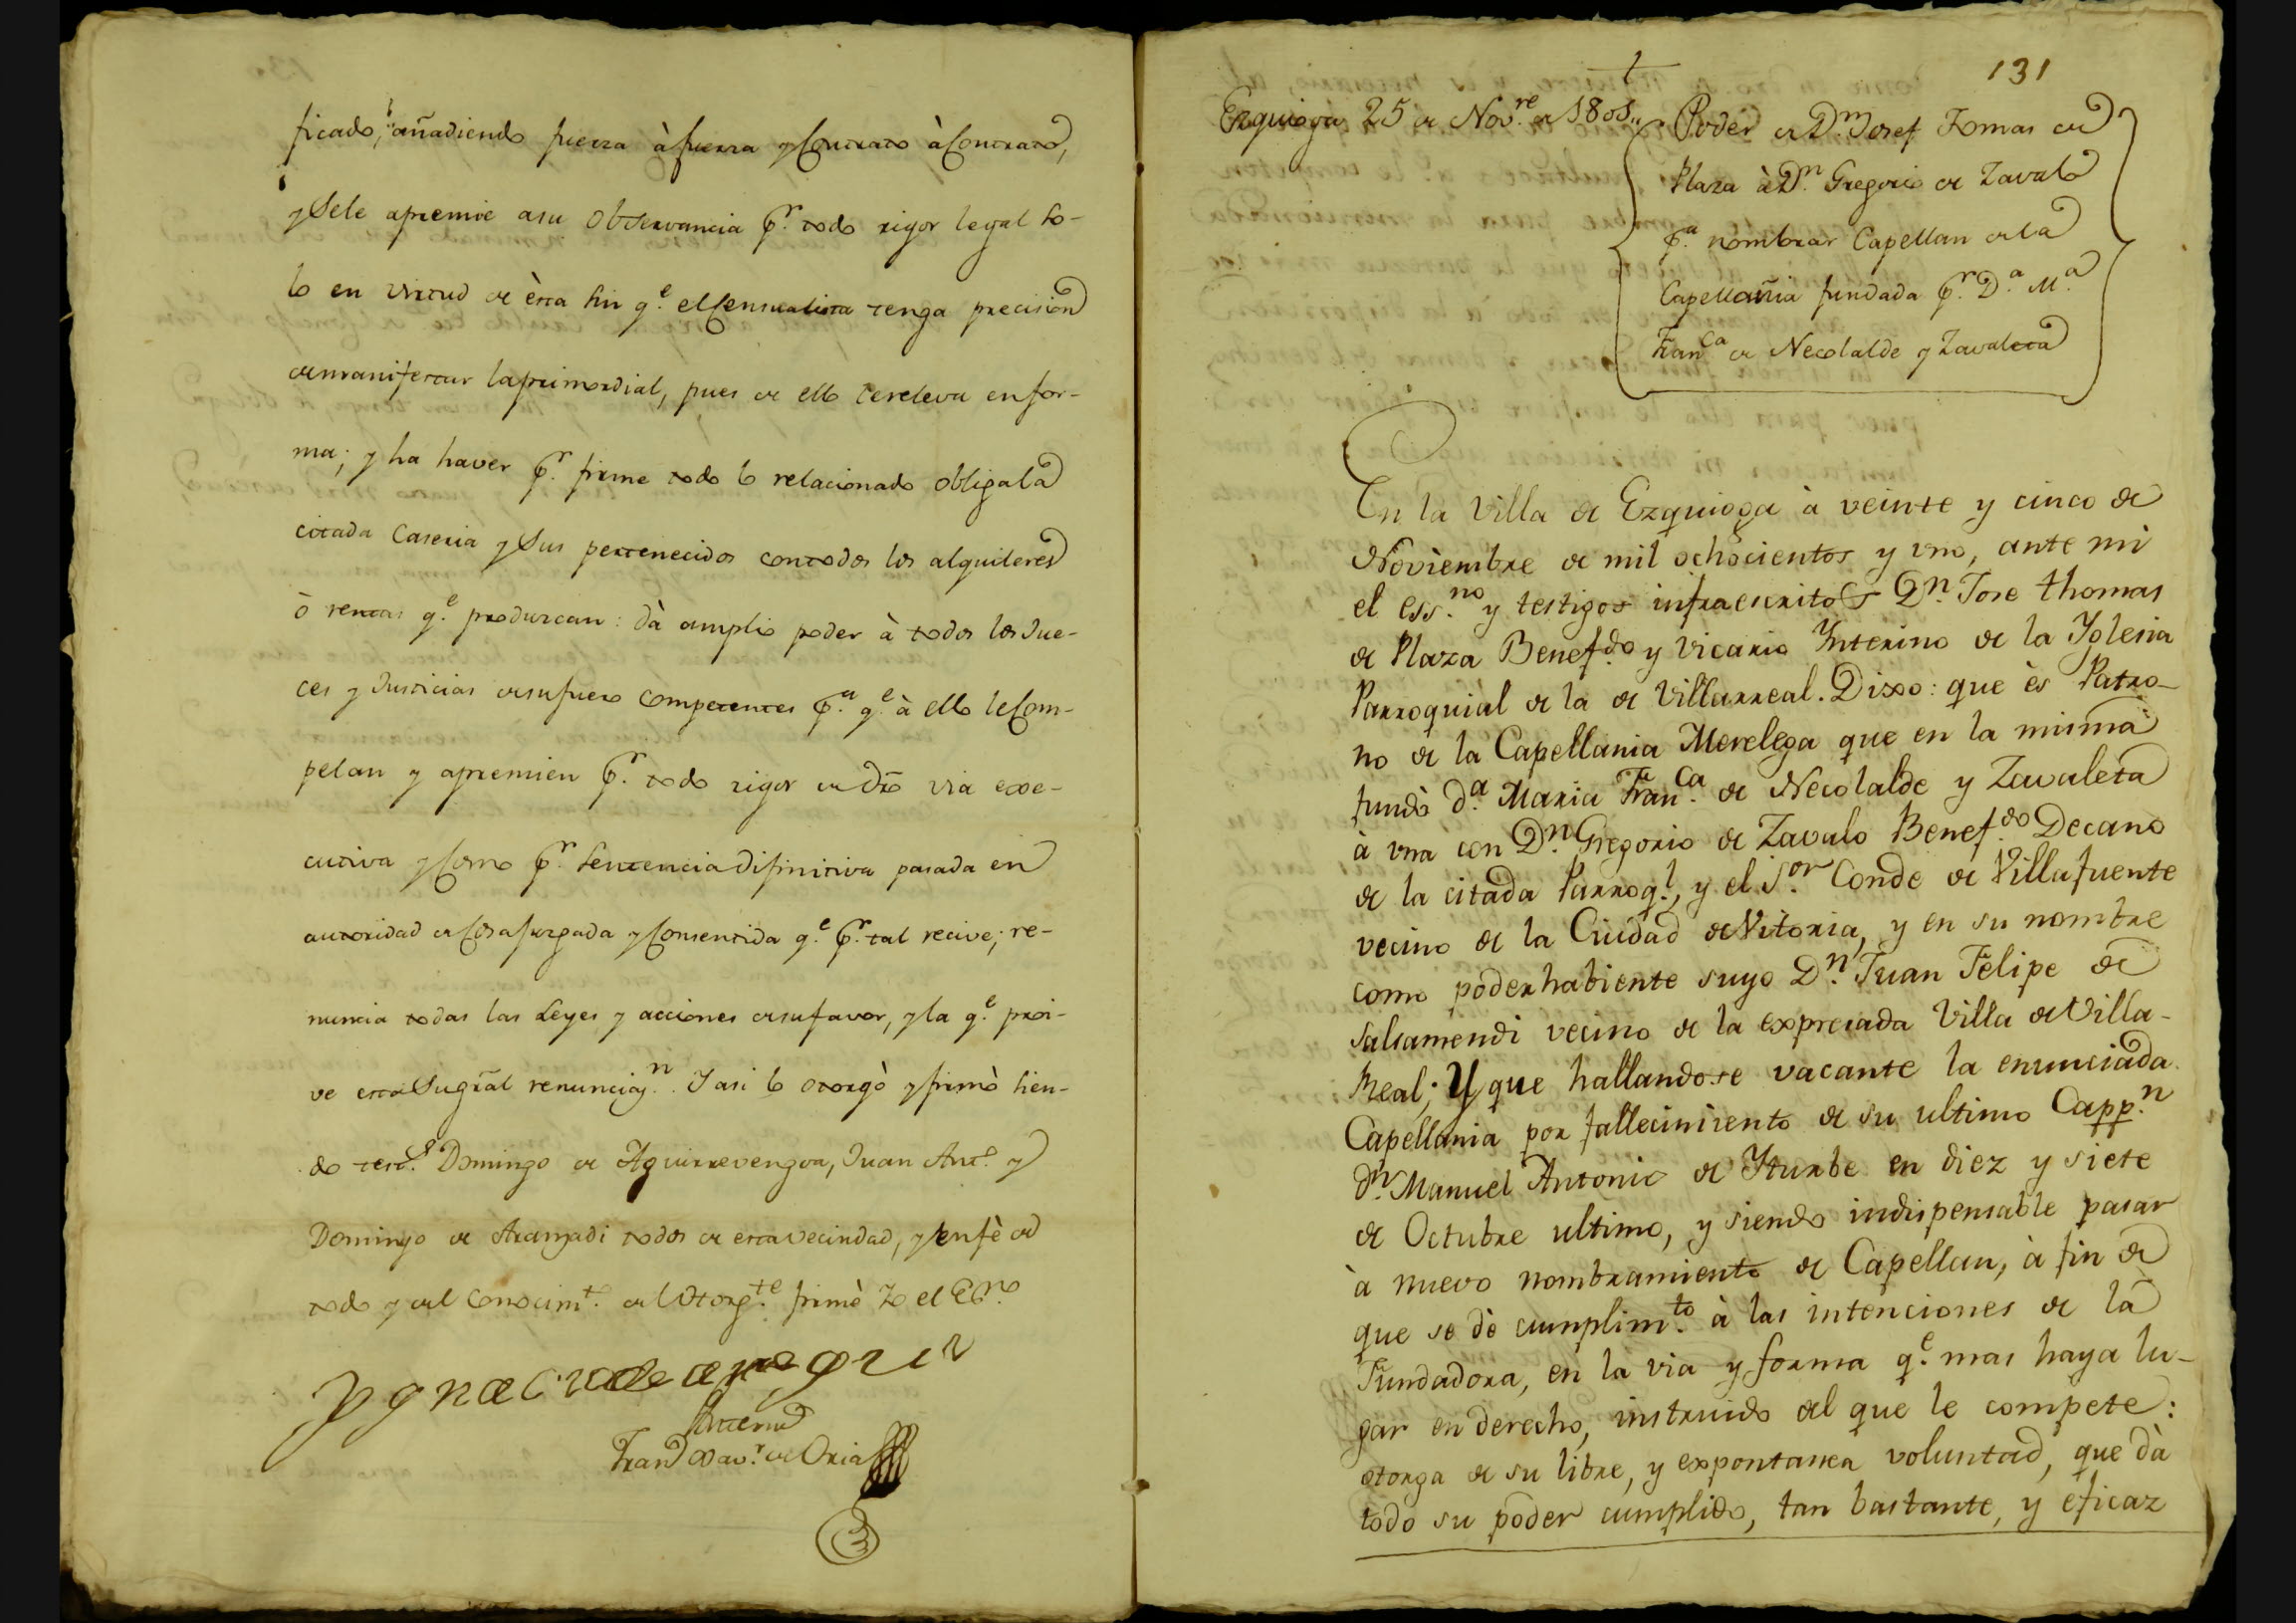 ficado, añadiendo fuerza à fuerza y Contrato à Contrato,
y Sele apremie asu Observancia pr. todo rigor legal so-
lo en virtud de èsta sin qe. el Censualista tenga precision
de manifestar la primordial, pues de ello sereleva enfor-
ma; y ha haver pr. firme todo lo relacionado obligala
citada Caseria y Sus pertenecidos contodos los alquileres
ò rentas qe. produzcan: dà amplio poder à todos los Jue-
ces y Justicias desufuero competentes pa. qe. à ello le Com-
pelan y apremien pr. todo rigor de dro via exe-
cutiva y Como pr. Sentencia difinitiva pasada en
autoridad de Cosa Juzgada y Consentida qe. pr. tal recive; re-
nuncia todas las Leyes y acciones desufavor, y la qe. proi-
ve esta Su gral renunciaz.n Y asi lo otorgò y firmò sien-
do test.s Domingo de Aguirrevengoa, Juan Ant.o y
Domingo de Aramadi todos de esta vecindad, y enfè de
todo y del Conocim.to del Otorg.te firmè Yo el Es.no
Ygnacio de
Antemi
Fran.co Xav.r de Oria
131
Ezquioga 25 de Nov.re de 1801
Poder de D.n Josef Tomas de
Plaza à D.n Gregorio de Zavalo
p.a nombrar Capellan de la
Capellañia fundada p.r D.a M.a
Fran.ca de Necolalde y Zavaleta
En la Villa de Ezquioga à veinte y cinco de
Noviembre de mil ochocientos y uno, ante mi
el ess.no y testigos infraescritos D.n Jose thomas
de Plaza Benef.do y Vicario Ynterino de la Yglesia
Parroquial de la de Villarreal. Dixo: que ès Patro-
no de la Capellania Merelega que en la misma
fundò d.a Maria Fran.ca de Necolalde y Zavaleta
à una con D.n Gregorio de Zavalo Benef.do Decano
de la citada Parroq.l, y el S.or Conde de Villafuente
vecino de la Ciudad de Vitoria, y en su nombre
como poderhabiente suyo D.n Juan Felipe de
Salsamendi vecino de la expresada Villa de Villa-
Real; Y que hallandose vacante la enunciada
Capellania por fallecimiento de su ultimo Capp.n
d.n Manuel Antonio de Yturbe en diez y siete
de Octubre ultimo, y siendo indispensable pasar
à nuevo nombramiento de Capellan, à fin de
que se dè cumplim.to à las intenciones de la
Fundadora, en la via y forma q.e mas haya lu-
gar en derecho, instruido del que le compete:
otorga de su libre, y expontanea voluntad, que dà
todo su poder cumplido, tan bastante, y eficaz